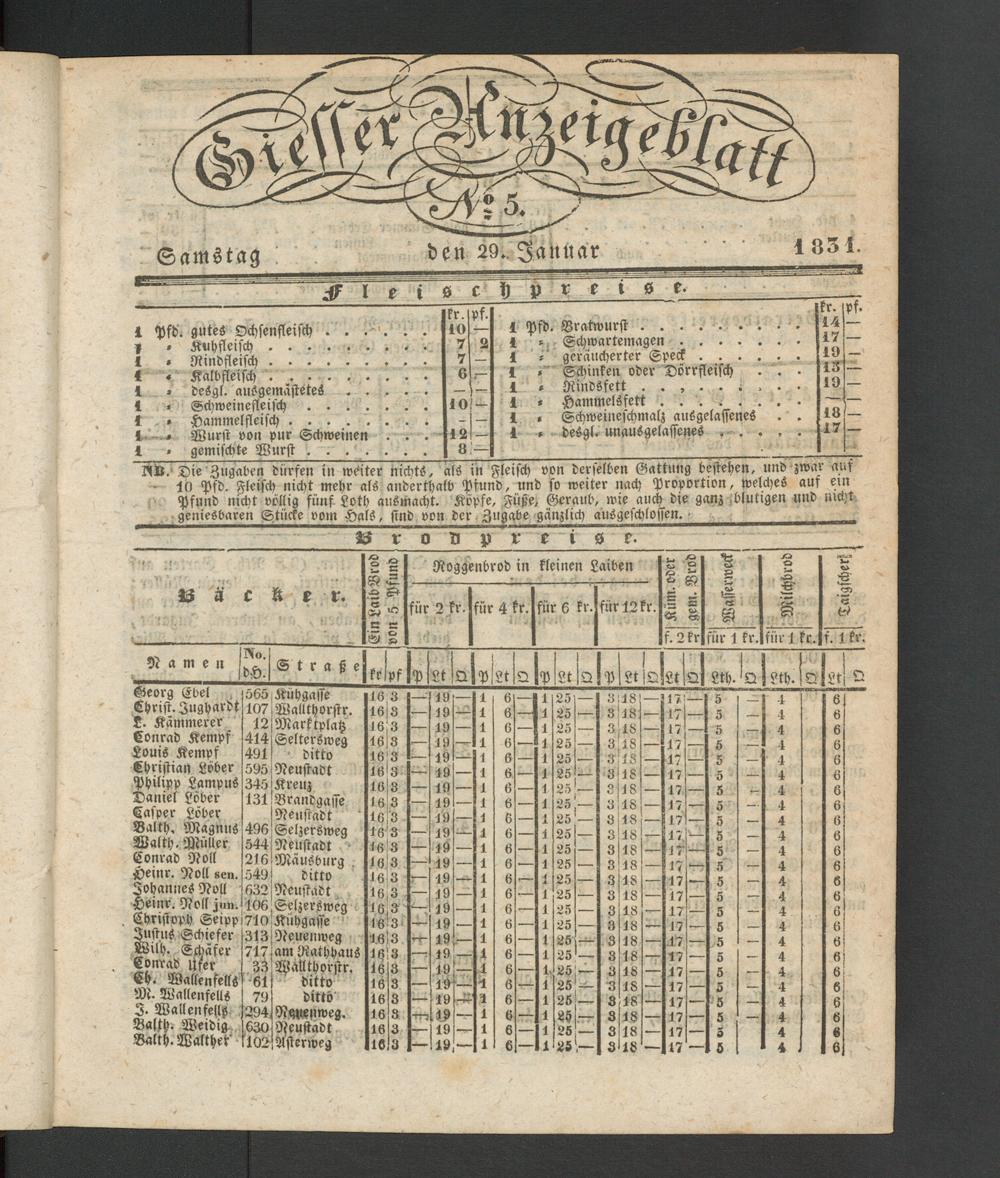 Giesser Anzeigeblatt
No 5.
Samstag den 29. Januar 1831.
Fleischpreise.
kr. pf.
1 Pfd. gutes Ochsenfleisch 10 —
1 " Kuhfleisch 7 2
1 " Rindfleisch 7 —
1 " Kalbfleisch 6 —
1 " desgl. ausgemästetes — —
1 " Schweinefleisch 10 —
1 " Hammelfleisch — —
1 " Wurst von pur Schweinen 12 —
1 " gemischte Wurst 8 —
kr. pf.
1 Pfd. Bratwurst 14 —
1 " Schwartemagen 17 —
1 " geräucherter Speck 19 —
1 " Schinken oder Dörrfleisch 13 —
1 " Rindsfett 19 —
1 " Hammelsfett — —
1 " Schweineschmalz ausgelassenes 18 —
1 " desgl. unausgelassenes 17 —
NB. Die Zugaben dürfen in weiter nichts, als in Fleisch von derselben Gattung bestehen, und zwar auf
10 Pfd. Fleisch nicht mehr als anderthalb Pfund, und so weiter nach Proportion, welches auf ein
Pfund nicht völlig fünf Loth ausmacht. Köpfe, Füße, Geraub, wie auch die ganz blutigen und nicht
geniesbaren Stücke vom Hals, sind von der Zugabe gänzlich ausgeschlossen.
Brodpreise.
Bäcker.
Ein Laib Brod von 5 Pfund
Roggenbrod in kleinen Laiben
für 2 kr. für 4 kr. für 6 kr. für 12 kr.
Küm. oder gem. Brod f. 2 kr
Wasserweck für 1 kr.
Milchbrod für 1 kr.
Taigscher f. 1 kr.
Namen No. d.H. Straße kr pf P Lt Q P Lt Q P Lt Q P Lt Q Lt Q Lth. Q Lth. Q Lt Q
Georg Ebel 565 Kühgasse 16 3 — 19 — 1 6 — 1 25 3 18 — 17 — 5 — 4 6
Christ. Jughardt 107 Wallthorstr. 16 3 — 19 — 1 6 — 1 25 3 18 — 17 — 5 — 4 6
L. Kämmerer 12 Marktplatz 16 3 — 19 — 1 6 — 1 25 3 18 — 17 — 5 — 4 6
Conrad Kempf 414 Seltersweg 16 3 — 19 — 1 6 — 1 25 3 18 — 17 — 5 — 4 6
Louis Kempf 491 ditto 16 3 — 19 — 1 6 — 1 25 3 18 — 17 — 5 — 4 6
Christian Löber 595 Neustadt 16 3 — 19 — 1 6 — 1 25 3 18 — 17 — 5 — 4 6
Philipp Lampus 345 Kreuz 16 3 — 19 — 1 6 — 1 25 3 18 — 17 — 5 — 4 6
Daniel Löber 131 Brandgasse 16 3 — 19 — 1 6 — 1 25 3 18 — 17 — 5 — 4 6
Casper Löber Neustadt 16 3 — 19 — 1 6 — 1 25 3 18 — 17 — 5 — 4 6
Balth. Magnus 496 Selzersweg 16 3 — 19 — 1 6 — 1 25 3 18 — 17 — 5 — 4 6
Walth. Müller 544 Neustadt 16 3 — 19 — 1 6 — 1 25 3 18 — 17 — 5 — 4 6
Conrad Noll 216 Mäusburg 16 3 — 19 — 1 6 — 1 25 3 18 — 17 — 5 — 4 6
Heinr. Noll sen. 549 ditto 16 3 — 19 — 1 6 — 1 25 3 18 — 17 — 5 — 4 6
Johannes Noll 632 Neustadt 16 3 — 19 — 1 6 — 1 25 3 18 — 17 — 5 — 4 6
Heinr. Noll jun. 106 Selzersweg 16 3 — 19 — 1 6 — 1 25 3 18 — 17 — 5 — 4 6
Christoph Seipp 710 Kühgasse 16 3 — 19 — 1 6 — 1 25 3 18 — 17 — 5 — 4 6
Justus Schiefer 313 Neuenweg 16 3 — 19 — 1 6 — 1 25 3 18 — 17 — 5 — 4 6
Wilh. Schäfer 717 am Rathhaus 16 3 — 19 — 1 6 — 1 25 3 18 — 17 — 5 — 4 6
Conrad Ufer 33 Wallthorstr. 16 3 — 19 — 1 6 — 1 25 3 18 — 17 — 5 — 4 6
Ch. Wallenfells 61 ditto 16 3 — 19 — 1 6 — 1 25 3 18 — 17 — 5 — 4 6
M. Wallenfells 79 ditto 16 3 — 19 — 1 6 — 1 25 3 18 — 17 — 5 — 4 6
J. Wallenfells 294 Neuenweg. 16 3 — 19 — 1 6 — 1 25 3 18 — 17 — 5 — 4 6
Balth. Weidig 630 Neustadt 16 3 — 19 — 1 6 — 1 25 3 18 — 17 — 5 — 4 6
Balth. Walther 102 Asterweg 16 3 — 19 — 1 6 — 1 25 3 18 — 17 — 5 — 4 6